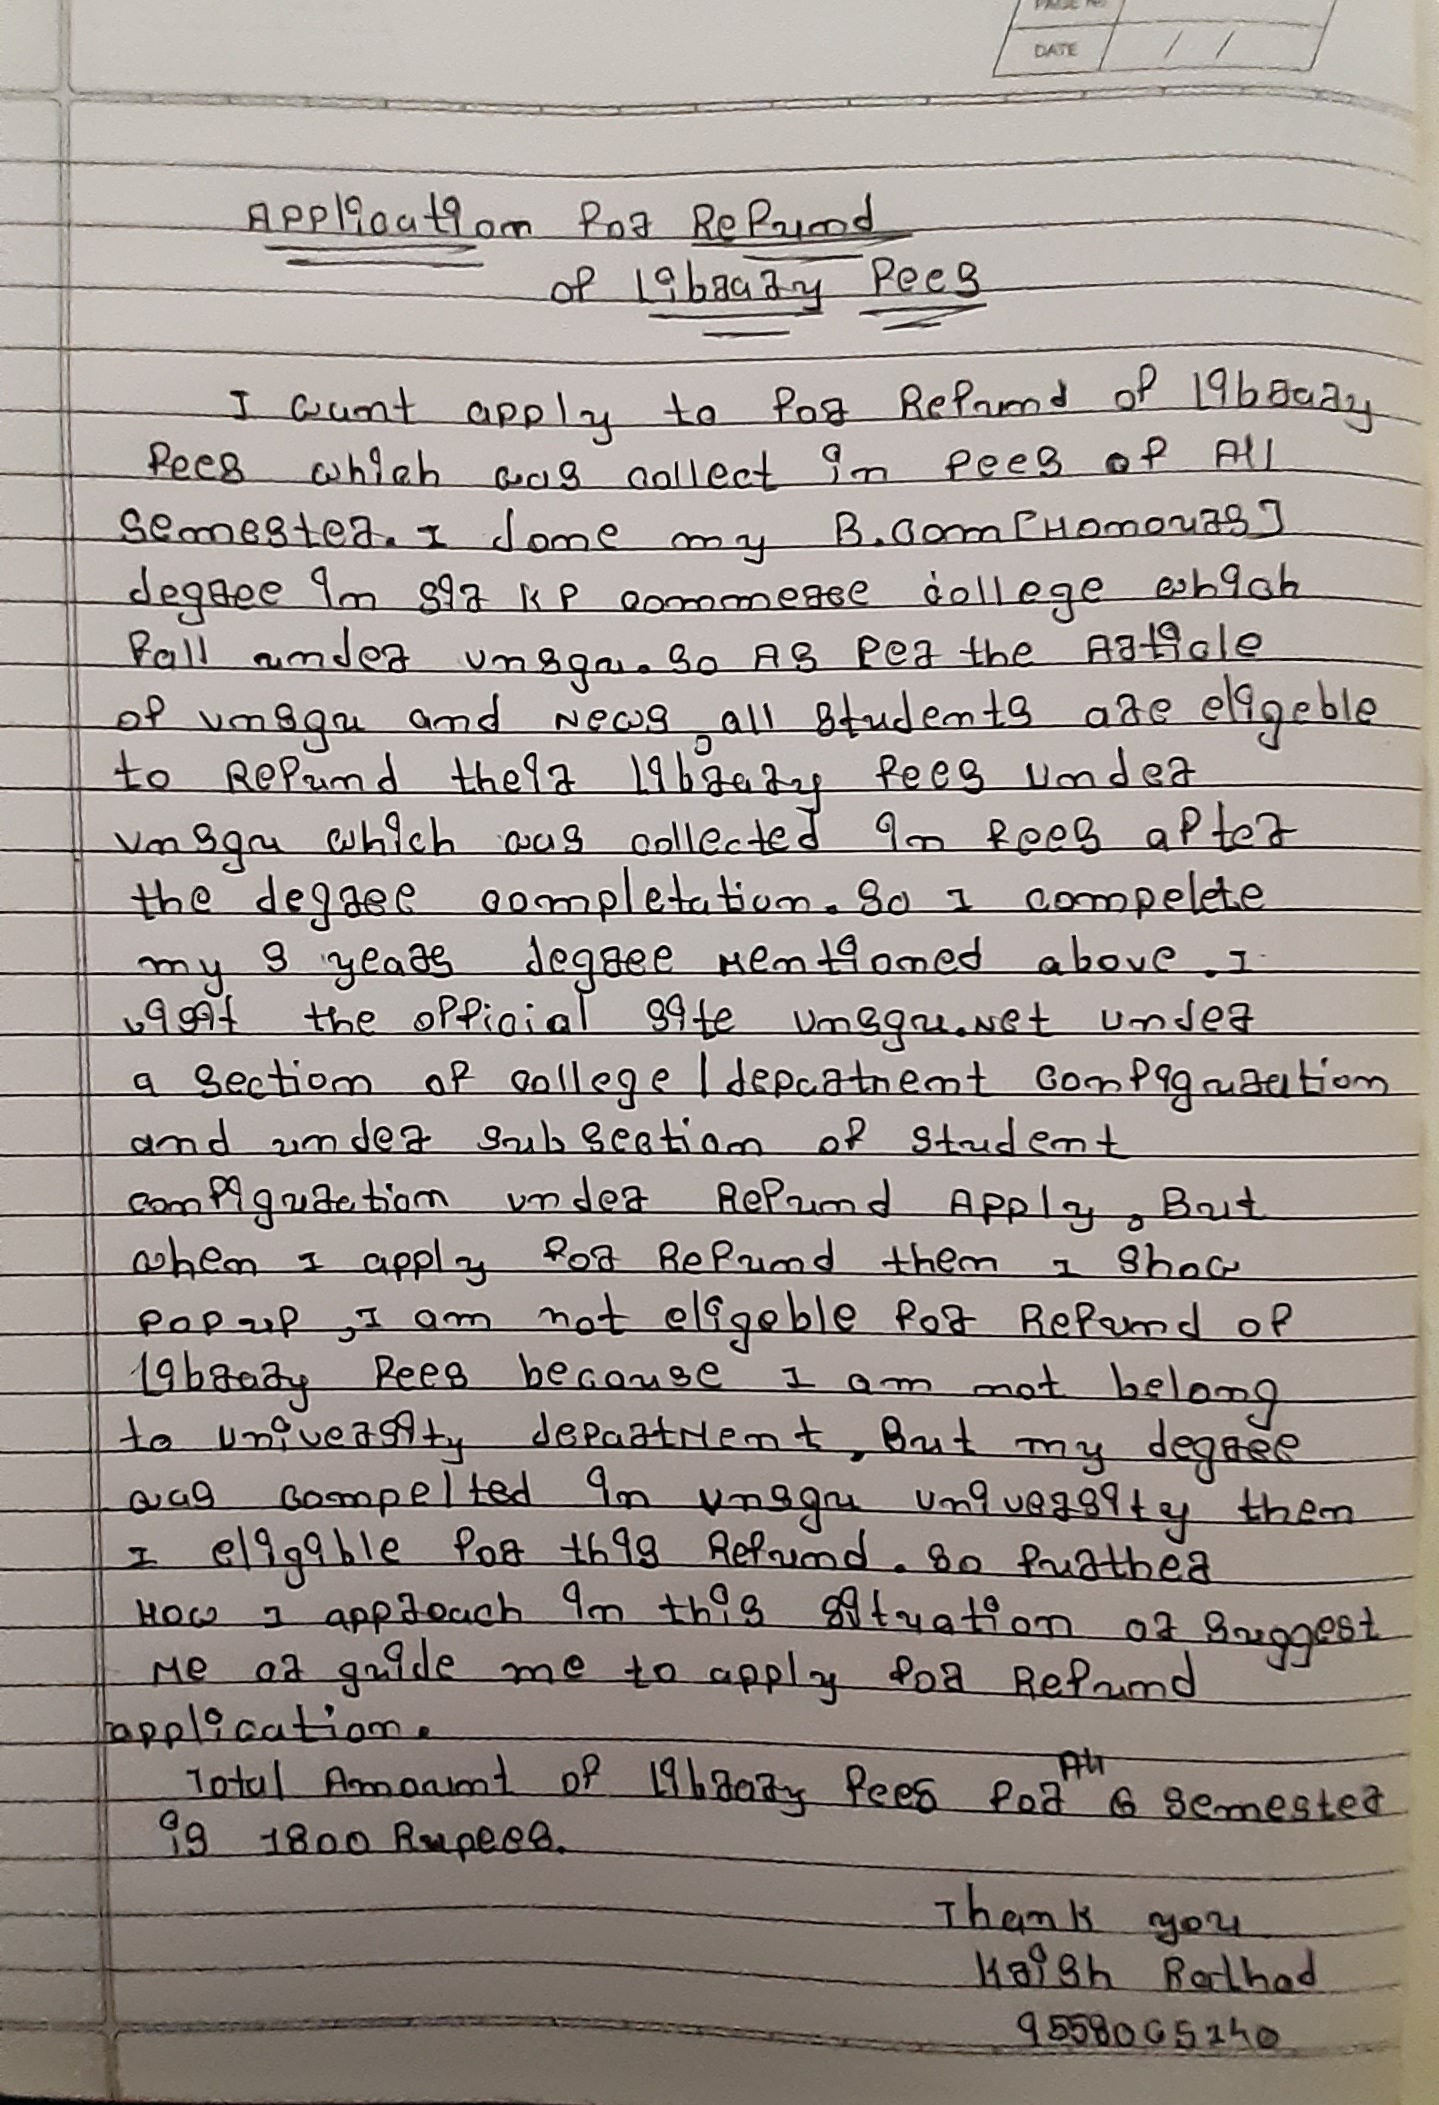 PAGE No.
DATE / /
Application for Refund
of Library Fees
I want apply to for Refund of library
fees which was collect in fees of All
semester. I done my B.com [Honours]
degree in sir KP commerce college which
fall under vnsgu. So As per the Article
of vnsgu and News, all students are eligeble
to Refund their library fees under
vnsgu which was collected in fees after
the degree completation. So I compelete
my 3 years degree Mentioned above. I
visit the official site vnsgu.net under
a section of college/depcatnent configuration
and under subsection of student
configuration under Refund Apply, But
when I apply for Refund them I show
popup, I am not eligeble for Refund of
library fees because I am not belong
to university department, But my degree
was compelted in vnsgu university then
I eligable for this Refund. So further
How I approach in this situation or suggest
Me or guide me to apply for Refund
application.
Total Amount of library fees for All 6 semester
is 1800 Rupees.
Thank you
Krish Rathod